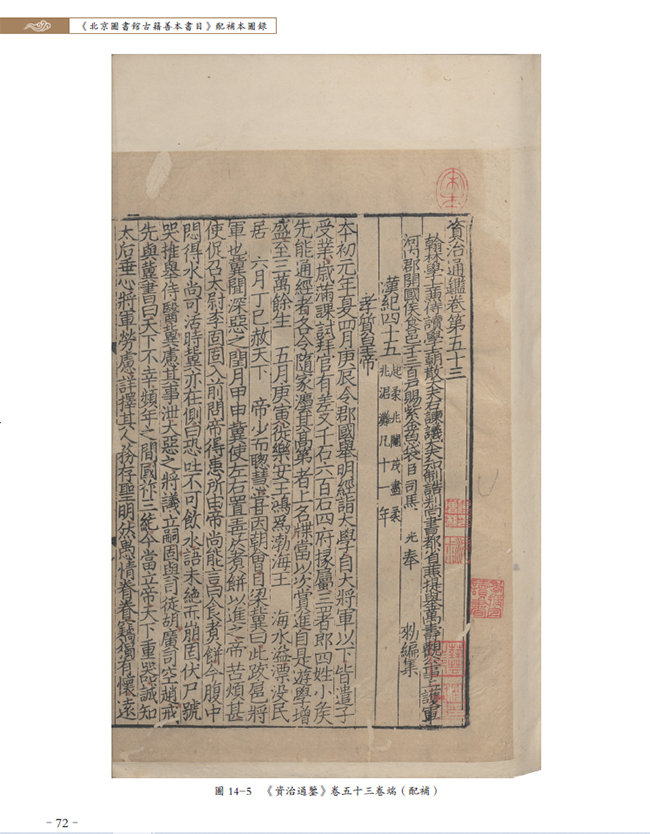 《北京圖書館古籍善本書目》配補本圖錄
宋本
資治通鑑卷第五十三
翰林學士兼侍讀學士朝散大夫右諫議大夫知制誥判尚書都省兼提舉萬壽觀公事上護軍
河內郡開國侯食邑一千三百戶賜紫金魚袋臣司馬 光奉 勑編集
漢紀四十五 起柔兆閹茂盡柔
兆涒灘凡十一年
孝質皇帝
本初元年夏四月庚辰令郡國舉明經詣大學自大將軍以下皆遣子
受業歲滿課試拜官有差又千石六百石四府掾屬三署郎四姓小侯
先能通經者各令隨家灋其高第者上名牒當以次賞進自是遊學增
盛至三萬餘生 五月庚寅徙樂安王鴻爲渤海王 海水溢漂没民
居 六月丁巳赦天下 帝少而聰慧嘗因朝會目梁冀曰此跋扈將
軍也冀聞深惡之閏月甲申冀使左右置毒於煮餅以進之帝苦煩甚
使促召太尉李固固入前問帝得患所由帝尚能言曰食煮餅今腹中
悶得水尚可活時冀亦在側曰恐吐不可飲水語未絕而崩固伏尸號
哭推舉侍醫冀慮其事泄大惡之將議立嗣固與司徒胡廣司空趙戒
先與冀書曰天下不幸頻年之間國祚三絕今當立帝天下重器誠知
太后垂心將軍勞慮詳擇其人務存聖明然愚情眷眷竊獨有懷遠
圖 14-5 《資治通鑒》卷五十三卷端（配補）
- 72 -